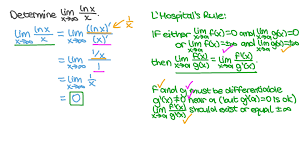 Determine lim x→∞ ln x / x
lim x→∞ ln x / x = lim x→∞ (ln x)' / (x)' 1/x
= lim x→∞ 1/x / 1
= lim x→∞ 1/x
= 0
L'Hospital's Rule:
IF either lim x→a f(x)=0 and lim x→a g(x)=0
or lim x→a f(x)=±∞ and lim x→a g(x)=±∞
then lim x→a f(x)/g(x) = lim x→a f'(x)/g'(x)
f and g must be differentiable
g'(x)≠0 near a (but g'(a)=0 is ok)
lim x→a f'(x)/g'(x) should exist or equal ±∞